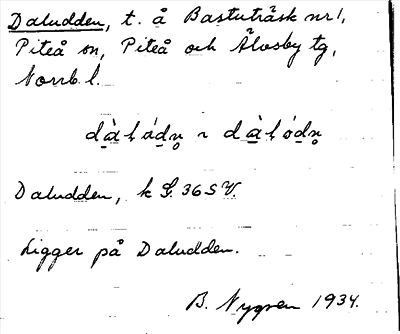 Daludden, t. å Bastuträsk nr 1,
Piteå sn, Piteå och Älvsby tg,
Norrb. l.
Daludden, k
Ligger på Daludden.
B. Nygren 1934.